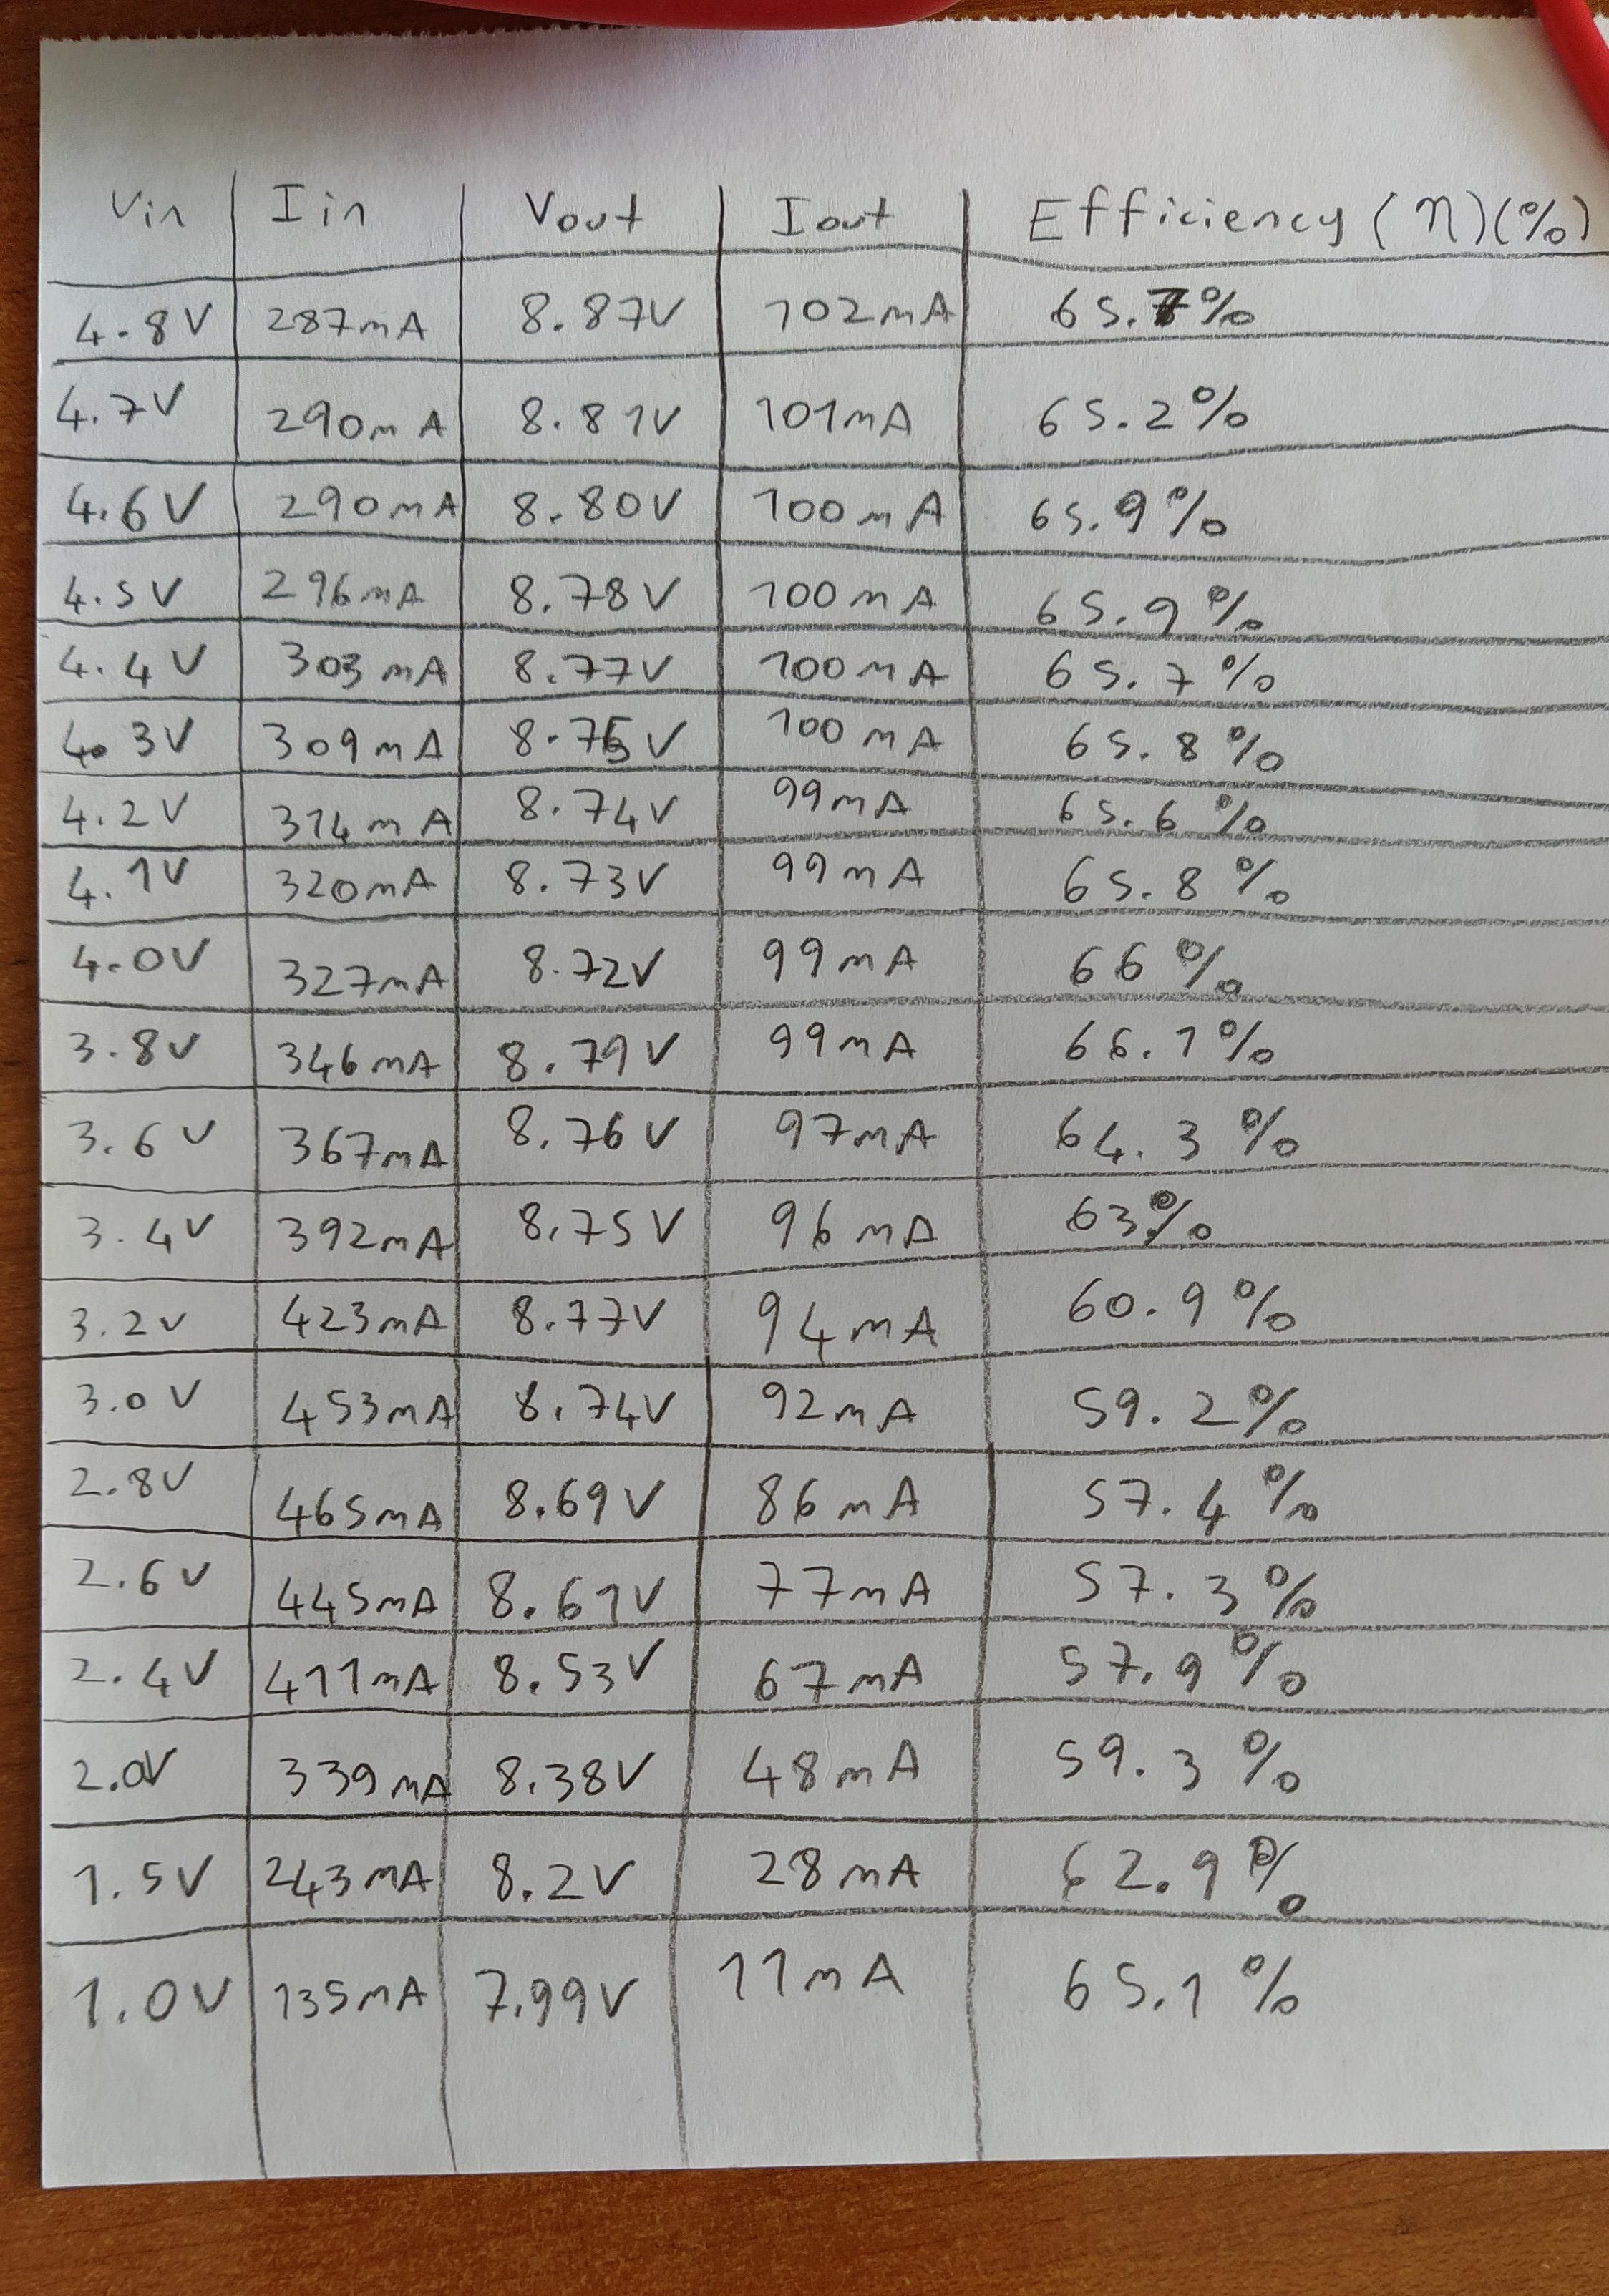 Vin Iin Vout Iout Efficiency (η)(%)
4.8V 287mA 8.87V 102mA 65.7%
4.7V 290mA 8.81V 101mA 65.2%
4.6V 290mA 8.80V 100mA 65.9%
4.5V 296mA 8.78V 100mA 65.9%
4.4V 303mA 8.77V 100mA 65.7%
4.3V 309mA 8.75V 100mA 65.8%
4.2V 314mA 8.74V 99mA 65.6%
4.1V 320mA 8.73V 99mA 65.8%
4.0V 327mA 8.72V 99mA 66%
3.8V 346mA 8.79V 99mA 66.1%
3.6V 367mA 8.76V 97mA 64.3%
3.4V 392mA 8.75V 96mA 63%
3.2V 423mA 8.77V 94mA 60.9%
3.0V 453mA 8.74V 92mA 59.2%
2.8V 465mA 8.69V 86mA 57.4%
2.6V 445mA 8.61V 77mA 57.3%
2.4V 411mA 8.53V 67mA 57.9%
2.0V 339mA 8.38V 48mA 59.3%
1.5V 243mA 8.2V 28mA 62.9%
1.0V 135mA 7.99V 11mA 65.1%